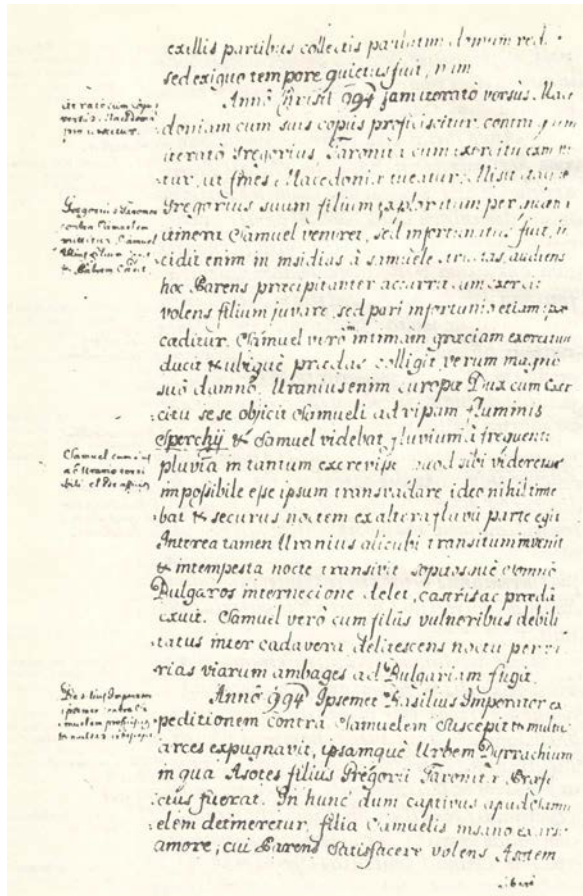 exillis partibus collectis paulatim domum red
sed exiguo tempore quietus fuit, nam
Annô Christi 994 jam iteratò versùs Mace
doniam cum suis copiis proficiscitur contra quem
iteratò Gregorius Taronita cum exercitu
tur, ut fines Macedoniæ tueatur. Misit itaque
Gregorius suum filium exploratum per quam
itinera Samuel veniret, sed infortunatus fuit, in
cidit enim in insidias à Samuele structas, audiens
hoc Parens præcipitanter accurrit cum exercitu
volens filium juvare, sed pari infortunio etiam
caditur. Samuel verò in intimam græciam exercitum
ducit & ubiquè prædas colligit verum magno
suô damnô. Uranius enim europæ Dux cum Exer
citu sese objicit Samueli ad ripam fluminis
Sperchij & Samuel videbat fluvium à frequenti
pluvia in tantum excrevisse quod sibi videretur
impossibile esse ipsum transvadare ideo nihil time
bat & securus noctem ex altera fluvii parte egit
Interea tamen Uranius alicubi transitum invenit
& intempesta nocte transivit sopitosque somnô
Bulgaros internecione delet, castris ac prædâ
exuit. Samuel verò cum filiis vulneribus debili
tatus inter cadavera delitescens noctu per
rias viarum ambages ad Bulgariam fugit.
Annô 994 Ipsemet Basilius Imperator ex
peditionem contra Samuelem suscepit & multas
arces expugnavit, ipsamque Urbem Dyrrachium
in qua Asotes filius Gregorii Taronitæ Præfe
ctus fuerat. In hunc dum captivus apud Samu
elem detineretur, filia Samuelis insano exarsit
amore, cui Parens satisfacere volens Asotem
Iterato cum copiis
versus Macedoniam
proficiscitur.
Gregorius Taronita
contra Samuelem
mittitur, Samuel
illius filium
Samuel cum
ab Urano
Basilius Imperator
contra Sa
muelem proficiscitur